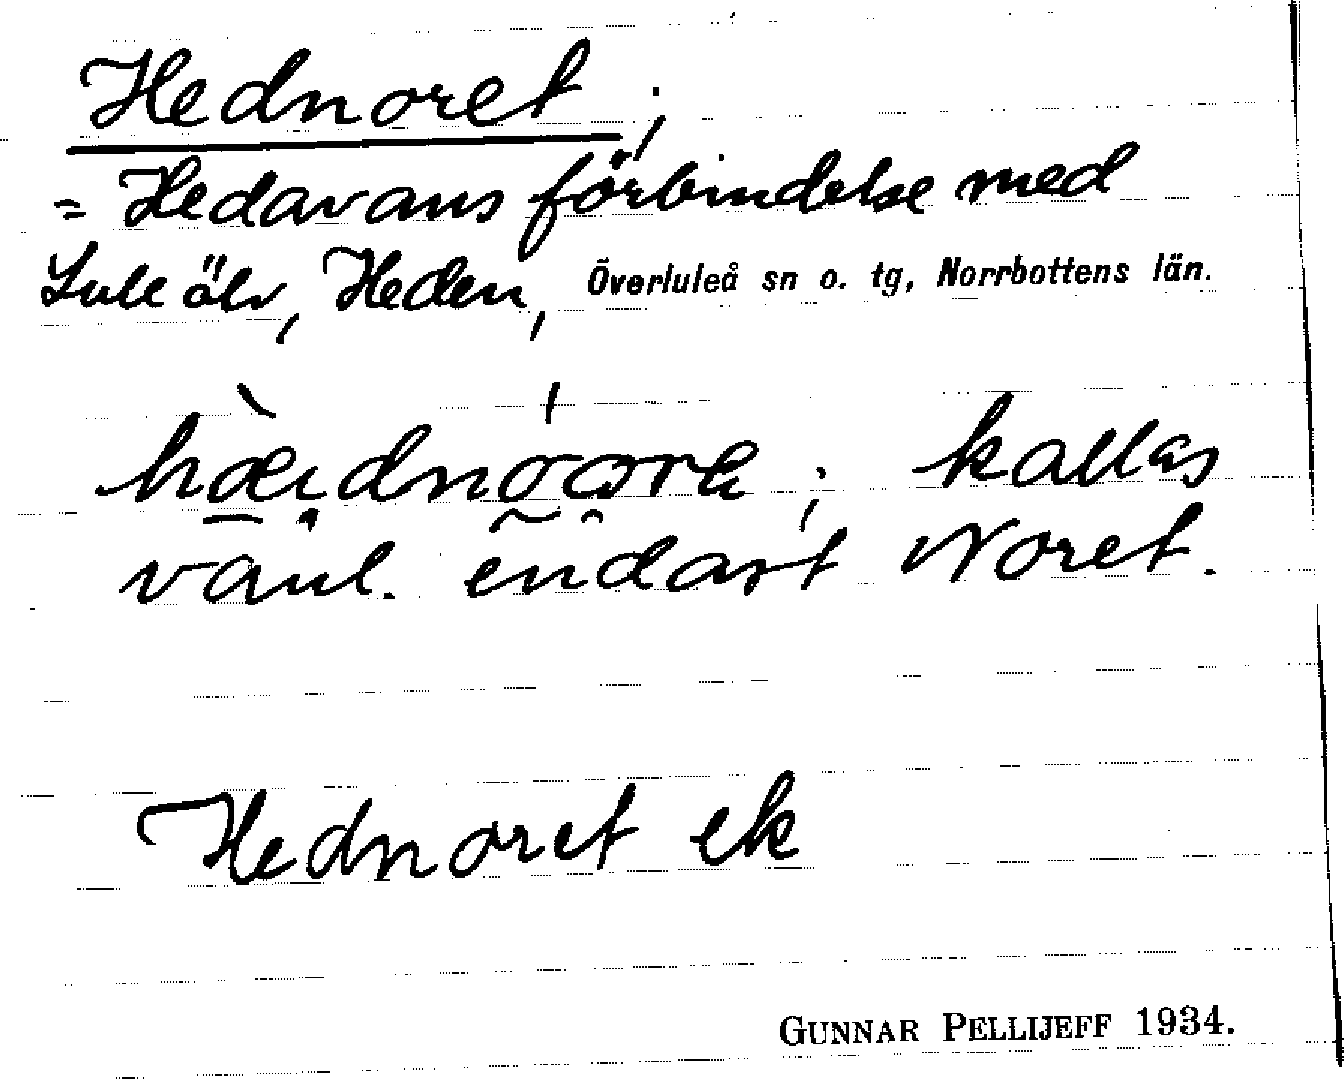 Hednoret;
= Hedavans förbindelse med
Lule älv, Heden, Överluleå sn o. tg, Norrbottens län.
kallas
vanl. endast Noret.
Hednoret ek
GUNNAR PELLIJEFF 1934.